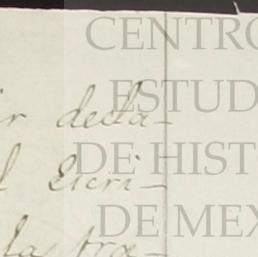 CENTRO
ESTUD
DE HIST
DE MEX
r decla-
l Escri-
la tra-